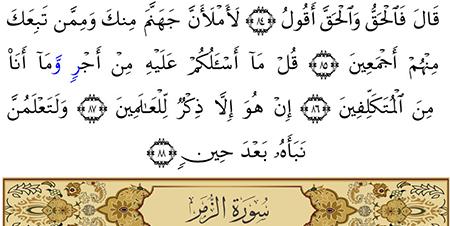 قَالَ فَٱلْحَقُّ وَٱلْحَقَّ أَقُولُ ﴿٨٤﴾ لَأَمْلَأَنَّ جَهَنَّمَ مِنكَ وَمِمَّن تَبِعَكَ
مِنْهُمْ أَجْمَعِينَ ﴿٨٥﴾ قُلْ مَآ أَسْـَٔلُكُمْ عَلَيْهِ مِنْ أَجْرٍ وَمَآ أَنَا۠
مِنَ ٱلْمُتَكَلِّفِينَ ﴿٨٦﴾ إِنْ هُوَ إِلَّا ذِكْرٌ لِّلْعَـٰلَمِينَ ﴿٨٧﴾ وَلَتَعْلَمُنَّ
نَبَأَهُۥ بَعْدَ حِينٍۭ ﴿٨٨﴾
سُورَةُ الزُّمَرِ